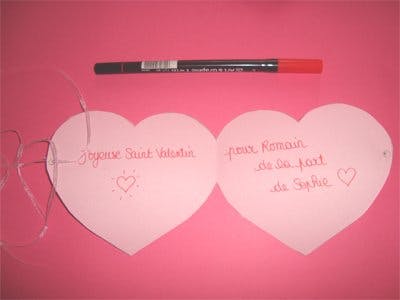 joyeuse Saint Valentin
pour Romain
de la part
de Sophie